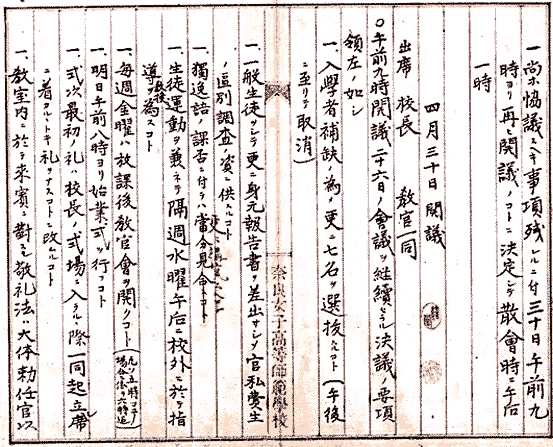 一尚ホ協議スベキ事項残レルニ付三十日午前九
時ヨリ再ビ開議ノコトニ決定シテ散會時ニ午后
一時
四月三十日開議
出席 校長 教官一同
〇午前九時開議二十六日ノ會議ヲ継續セラル決議ノ要項
領左ノ如シ
一、入學者補缺ノ為メ更ニ七名ヲ選抜スルコト(午後
ニ至リテ取消)
奈良女子高等師範學校
一、一般生徒ヲシテ更ニ身元報告書ヲ差出サシメ官私費生
ノ區別調査ノ資ニ供スルコト
一、獨逸語ノ課否ニ付テハ當分見合スコト
一、生徒運動ヲ兼ネテ隔週水曜午后ニ校外ニ於テ指
導ヲ為スコト
一、毎週金曜ハ放課後教官會ヲ開クコト
一、明日午前八時ヨリ始業式ヲ行フコト
一、式次最初ノ礼ハ校長ノ式場ニ入ラルヽ際一同起立席
ニ着カルヽトキ礼ヲナスコトニ改ムルコト
一、教室内ニ於テ来賓ニ對スル敬礼法ハ大体勅任官以